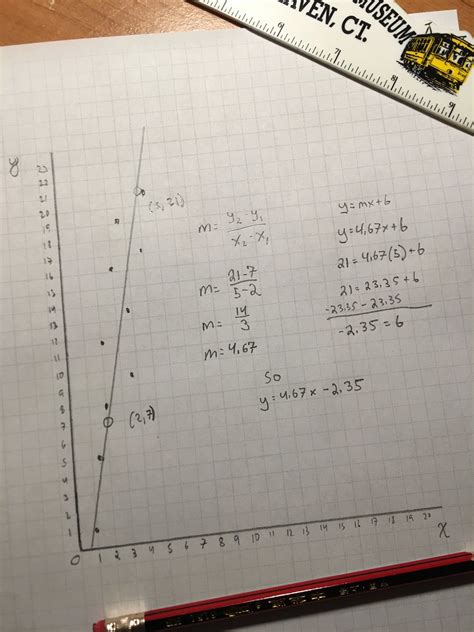 MUSEUM
HAVEN, CT.
7
8
9
y
23
22
21
20
19
18
17
16
15
14
13
12
11
10
9
8
7
6
5
4
3
2
1
0
1 2 3 4 5 6 7 8 9 10 11 12 13 14 15 16 17 18 19 20
x
(5,21)
(2,7)
m= y₂-y₁
x₂-x₁
m= 21-7
5-2
m= 14
3
m= 4.67
y=mx+b
y=4.67x+b
21=4.67(5)+b
21=23.35+b
-23.35 -23.35
-2.35=b
SO
y=4.67x-2.35